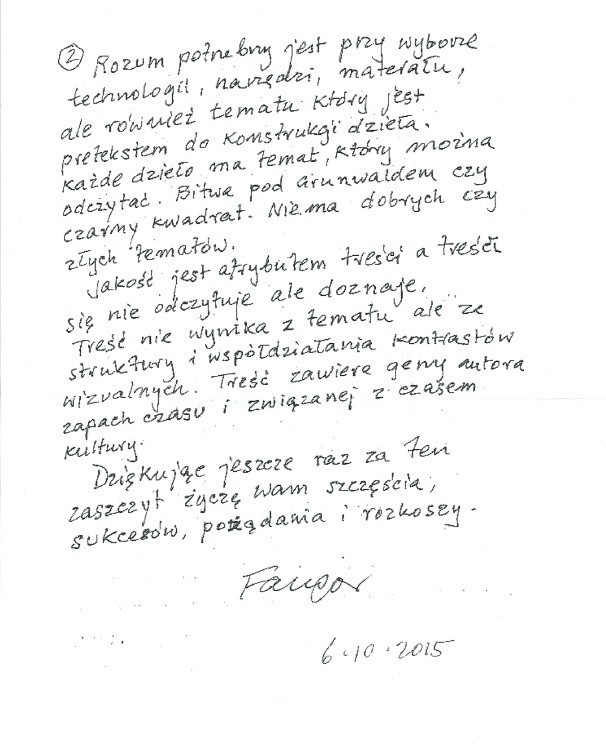 ② Rozum potrzebny jest przy wyborze
technologii, narzędzi, materału,
ale również tematu który jest
pretekstem do konstrukcji dzieła.
Każde dzieło ma temat, który można
odczytać. Bitwa pod Grunwaldem czy
czarny kwadrat. Nie ma dobrych czy
złych tematów.
Jakość jest atrybutem treści a treści
się nie odczytuje ale doznaje.
Treść nie wynika z tematu ale ze
struktury i współdziałania kontrastów
wizualnych. Treść zawiera geny autora
zapach czasu i związanej z czasem
kultury.
Dziękując jeszcze raz za ten
zaszczyt życzę Wam szczęścia,
sukcesów, pożądania i rozkoszy.
Fangor
6.10.2015